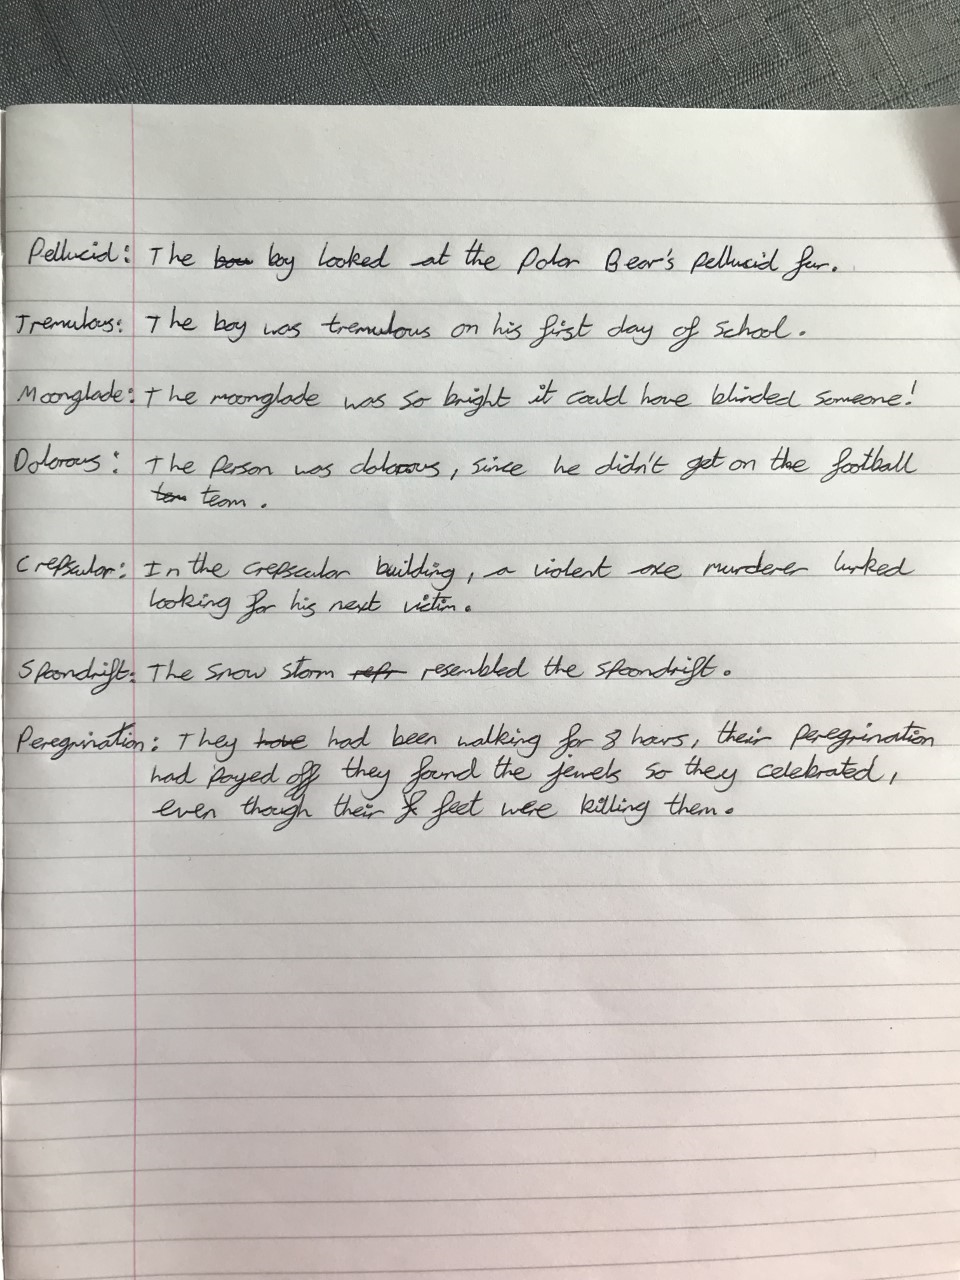 Pellucid: The bou boy looked at the Polar Bear's pellucid fur.
Tremulous: The boy was tremulous on his first day of School.
Moonglade: The moonglade was so bright it could have blinded someone!
Dolorous: The person was dolorous, since he didn't get on the football
tem team.
Crepscular: In the crepscular building, a violent axe murderer lurked
looking for his next victim.
Spoondrift: The snow storm refr resembled the spoondrift.
Peregrination: They have had been walking for 8 hours, their peregrination
had payed off they found the jewels so they celebrated,
even though their f feet were killing them.